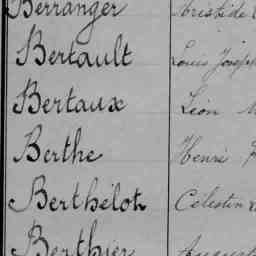 Berranger Aristide
Bertault Louis Joseph
Bertaux Léon
Berthe Henri
Berthélot Célestin
Berthier August